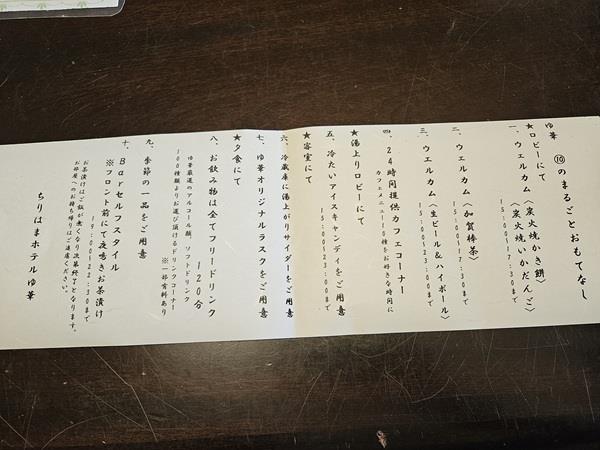 ゆ華 ⑩のまるごとおもてなし
★ロビーにて
一、ウェルカム〈炭火焼かき餅〉
〈炭火焼いかだんご〉
15:00~17:30まで
二、ウェルカム〈加賀棒茶〉
15:00~17:30まで
三、ウェルカム〈生ビール&ハイボール〉
15:00~23:00まで
四、24時間提供カフェコーナー
カフェメニュー10種をお好きな時間に
★湯上りロビーにて
五、冷たいアイスキャンディをご用意
15:00~23:00まで
★客室にて
六、冷蔵庫に湯上がりサイダーをご用意
七、ゆ華オリジナルラスクをご用意
★夕食にて
八、お飲み物は全てフリードリンク
120分
ゆ華厳選のアルコール類、ソフトドリンク
100種類よりお選び頂けるドリンクコーナー
※一部有料あり
九、季節の一品をご用意
十、Barセルフスタイル
※フロント前にて夜鳴きお茶漬け
19:00~22:30まで
お茶漬けはご飯が無くなり次第終了となります。
お部屋へのお持ち帰りはご遠慮ください。
ちりはまホテルゆ華